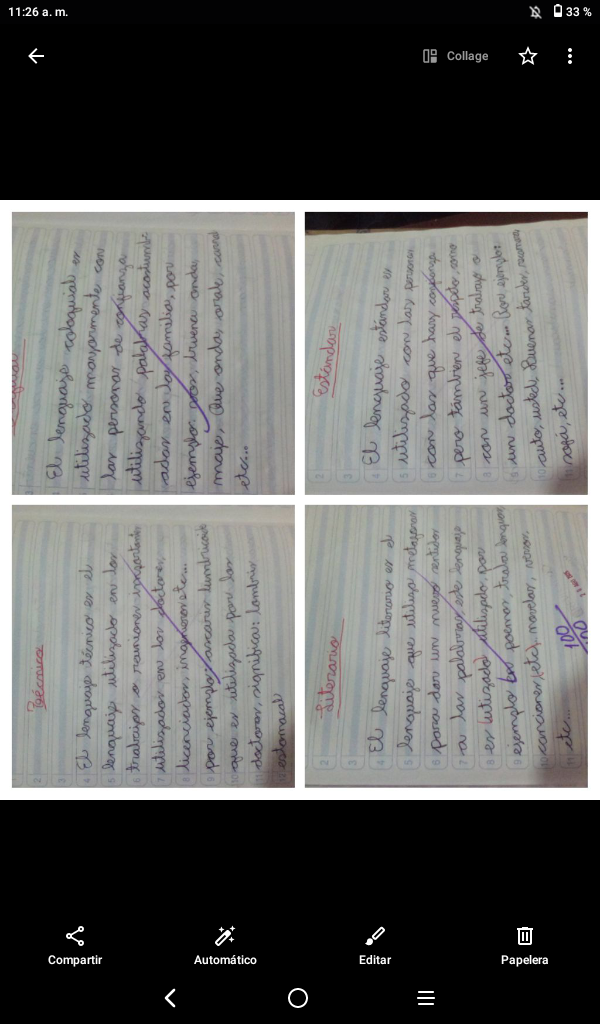 11:26 a. m.
33 %
Collage
El lenguaje coloquial es
utilizado mayormente con
las personas de confianza
utilizando palabras acostumbr
adas en la familia, por
buena onda,
Que onda,
etc...
Estándar
2
3
4 El lenguaje estándar es
5 utilizado con las personas
6 con las que hay confianza
7 pero también el respeto, como
8 con un jefe de trabajo o
9 un doctor etc... Por ejemplo:
10 auto, usted, Buenas tardes,
11 etc...
Técnico
2
3
4 El lenguaje técnico es el
5 lenguaje utilizado en los
6 trabajos o reuniones importantes
7 utilizados en los doctores,
8 licenciados, ingenieros etc...
9 por ejemplo: ascaris lumbricoide
10 que es utilizada por los
11 doctores, significa: lombriz
12 estomacal
Literario
2
3
4 El lenguaje literario es el
5 lenguaje que utiliza metáforas
6 para dar un nuevo sentido
7 a las palabras, este lenguaje
8 es utilizado utilizado, por
9 ejemplo en poemas,
10 canciones (etc) novelas,
11 etc...
100
100
Compartir
Automático
Editar
Papelera